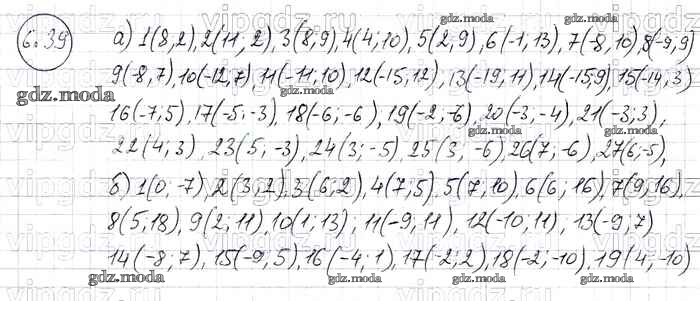 6.39 а) 1(8,2), 2(11, 2), 3(8,9), 4(4,10), 5(2,9), 6(-1,13), 7(-8,10), 8(-9,9)
9(-8,7), 10(-12,7), 11(-11,10), 12(-15,12), 13(-19,11), 14(-15,9), 15(-14,3)
16(-7;5), 17(-5;-3), 18(-6;-6), 19(-2,-6), 20(-3;-4), 21(-3;3),
22(4;3), 23(5;-3), 24(3;-5), 25(3; -6), 26(7;-6), 27(6;-5),
б) 1(0; -7), 2(3;2), 3(6;2), 4(7;5), 5(7,10), 6(6; 16), 7(9,16),
8(5,18), 9(2;11), 10(1;13); 11(-9,11), 12(-10,11), 13(-9,7)
14(-8;7), 15(-9,5), 16(-4;1), 17(-2;2), 18(-2;-10), 19(4,-10)
gdz.moda
vipgdz.ru